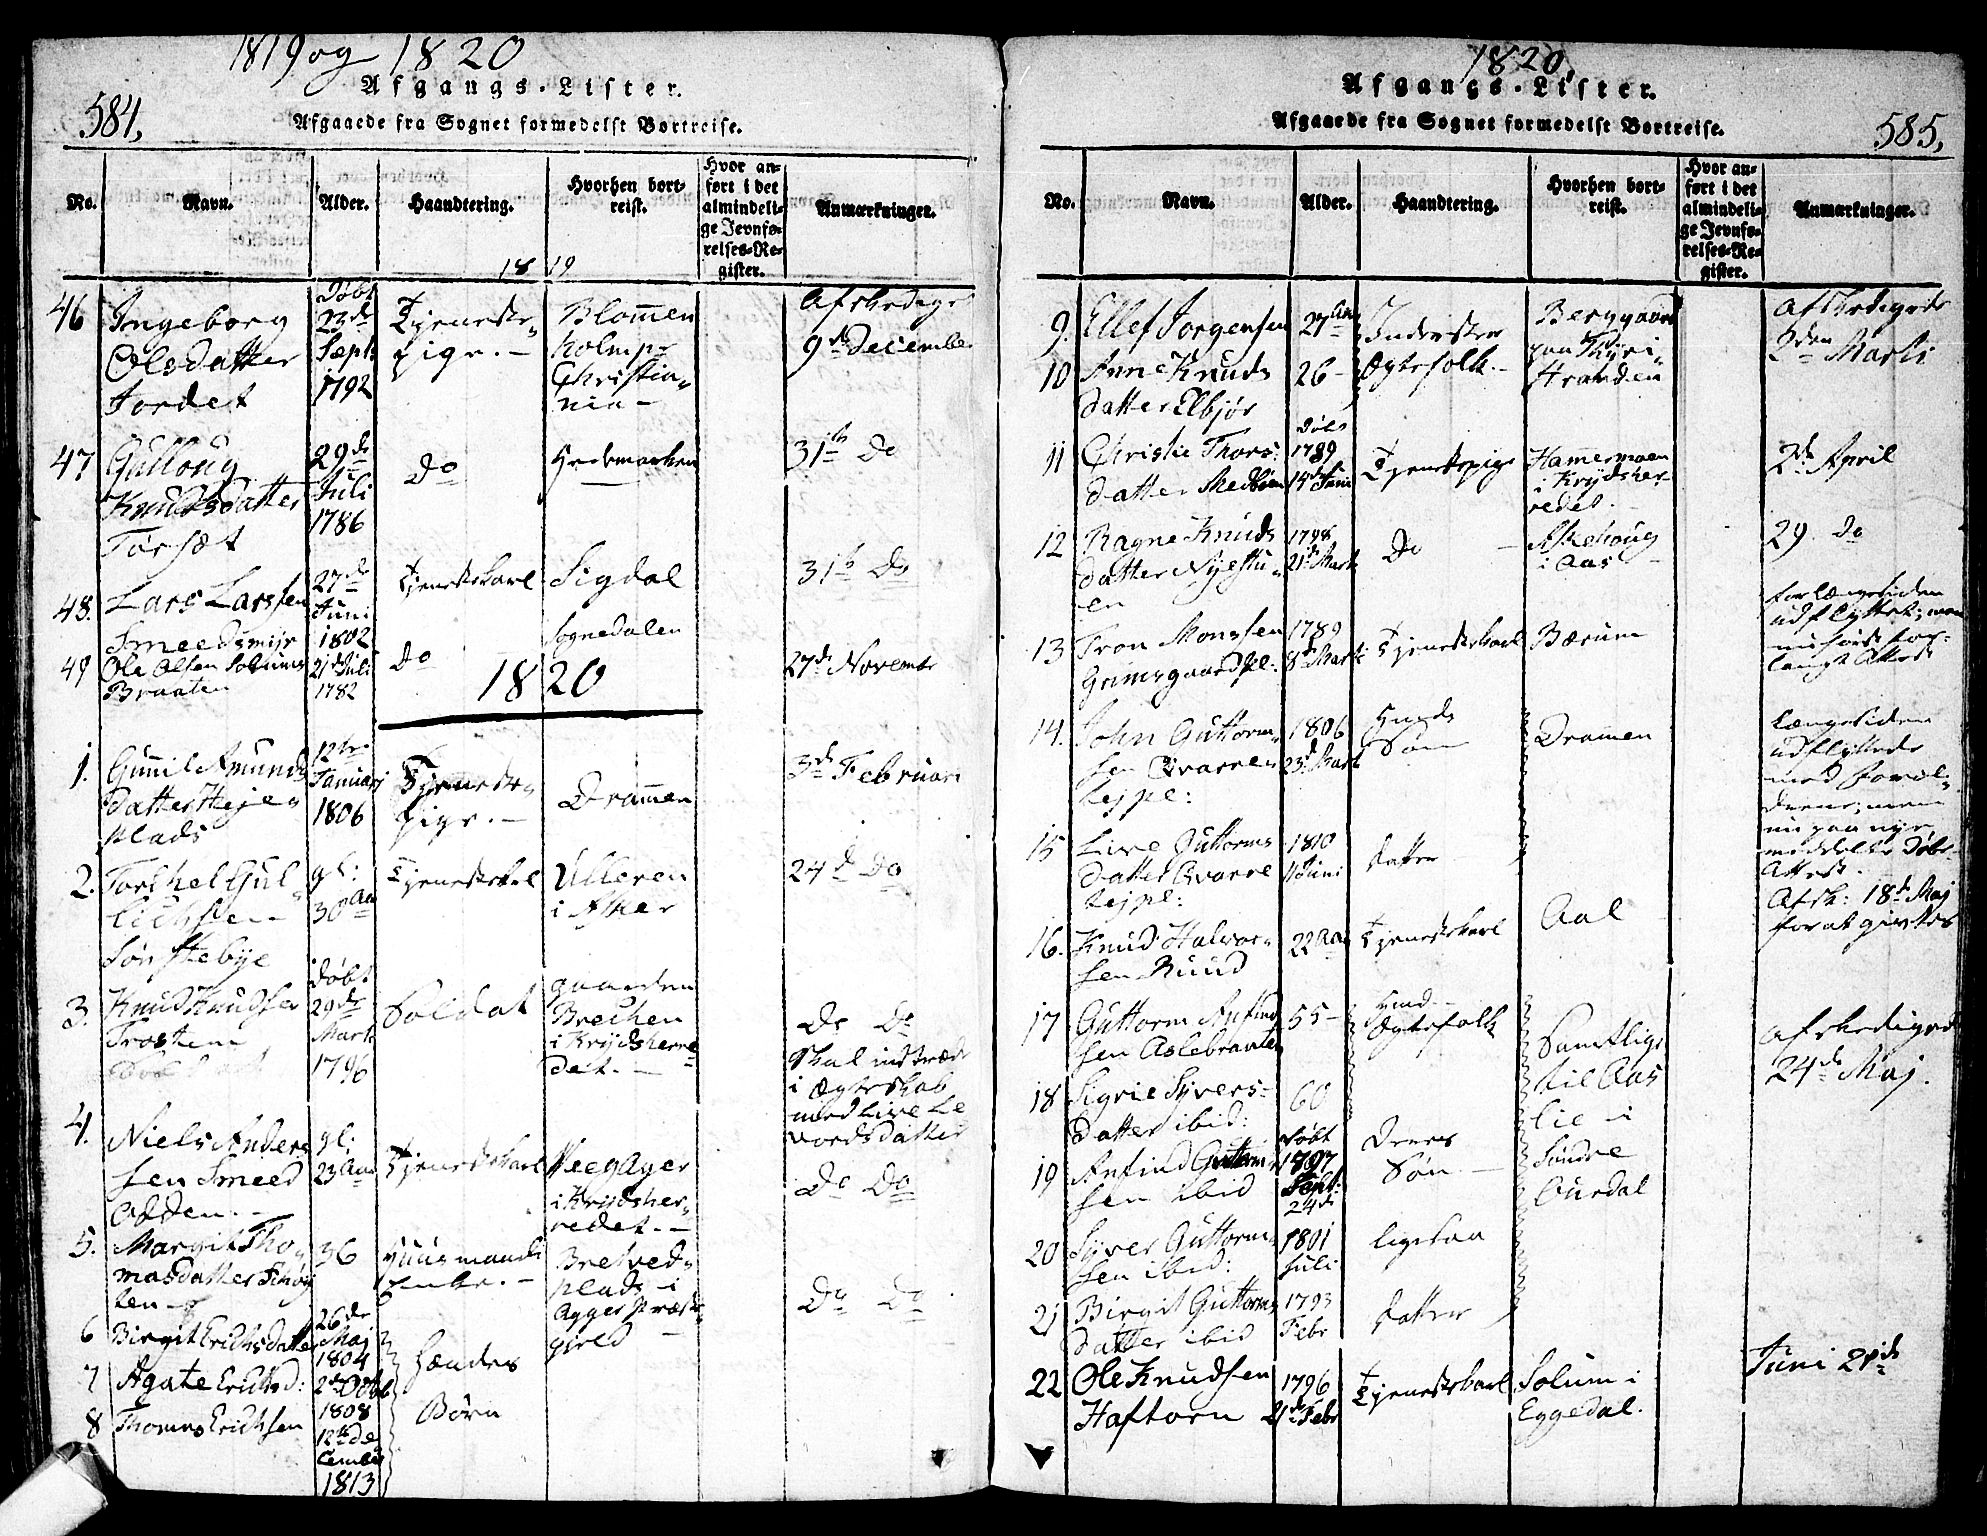 1819 og 1820
Afgangs-Lister.
584,
Afgaaede fra Sognet formedelst Bortreise.
No. Navn. Alder. Haandtering. Hvorhen bortreist. Hvor anført i det almindelige Jevnførelses-Register. Anmærkninger.
1819
46 Ingeborg Olsdatter Jordet Døbt 23de Sept. 1792 Tjenestepige.- Blommenholm pr Christiania- Afskediget 9de December
47 Gulloug Knudsdatter Torsæt 29de Juli 1786 Do Hedemarken 31te Do
48. Lars Larssen Smeedsmyr 27de Juni 1802 Tjenestekarl Sigdal 31te Do
49 Ole Olsen Braaten 21de Juli 1782 Do Sognedalen 27de Novembr
1820
1. Gunnil Amunds datter Hejeplads 12te Januarj 1806 Tjenestepige.- Drammen 3de Februari
2. Torchel Gullichsen Sønstebye gl: 30 Aar Tjenestekarl Ulleren i Asker 24de Do
3. Knud Knudsen Trostem Døbt 29de Marti 1796 Soldat gaarden Brechen i Krydsherredet.- Do Do Skal indtræde i Ægteskab med Live Levordsdatter
4. Niels Andersen Smeedodden.- gl: 23 Aar Tjenestekarl Veeg Ager i Krydsherredet.- Do Do
5. Margit Thomasdatter 36 Huusmands Enke.- Bretvedplads i Agger Præstegield Do Do
6 Birgit Erichsdatter 26de Maj 1804 Hendes Børn
7 Agate Erichsd: 2de Octob 1808
8 Thomas Erichsen 12te December 1813
1820,
Afgangs-Lister.
Afgaaede fra Sognet formedelst Bortreise.
585,
No. Navn. Alder. Haandtering. Hvorhen bortreist. Hvor anført i det almindelige Jevnførelses-Register. Anmærkninger.
9. Ellef Jorgensen 27 Aar Inderster Berggaard paa Thyristranden Afskediget 2den Marti
10 Anne Knuds datter Elbjør 26- Ægtefolk.-
11 Christie Thors: datter Medbøen Døbt 1789 14de Juni Tjenestepige Hamermoen i Krydsherredet. 2de April
12 Ragne Knuds datter Nyestuen 1798 21de Marti Do Askehoug i Aas 29 Do
13 Tron Monssen Grimsgaardspl: 1789 8de Marti Tjenestekarl Bærum for længesiden udflyttet; men nu først forlangt Attest
14. John Guttormsen Qvarrelejpl: 1806 23de Marti Hands Søn Dramen Længesiden udflyttede med Forældrene; men nu paa nye meddelte Døbe-Attest.
15 Live Guttorms datter Qvarrelejpl: 1810 Juni datter
16. Knud Halvorsen Ruud 22 Aar Tjenestekarl Aal Afsk: 18de Maj for at givtes
17 Guttorm Anfindsen Aslebraaten 55- Ægtefolk Samtlige til Aaslie i Søndre Ourdal Afskediget 24de Maj.
18 Sigrie Syvers-datter ibid: 60
19 Anfind Guttormsen ibid Døbt 1797 Sept. 24de Deres Søn.-
20 Syver Guttormsen ibid: 1801 Juli ligesaa
21 Birgit Guttorms datter ibid 1793 Febr datter
22 Ole Knudsen Haftorn 1796 21de Febr Tjenestekarl Solum i Eggedal. Juni 21de